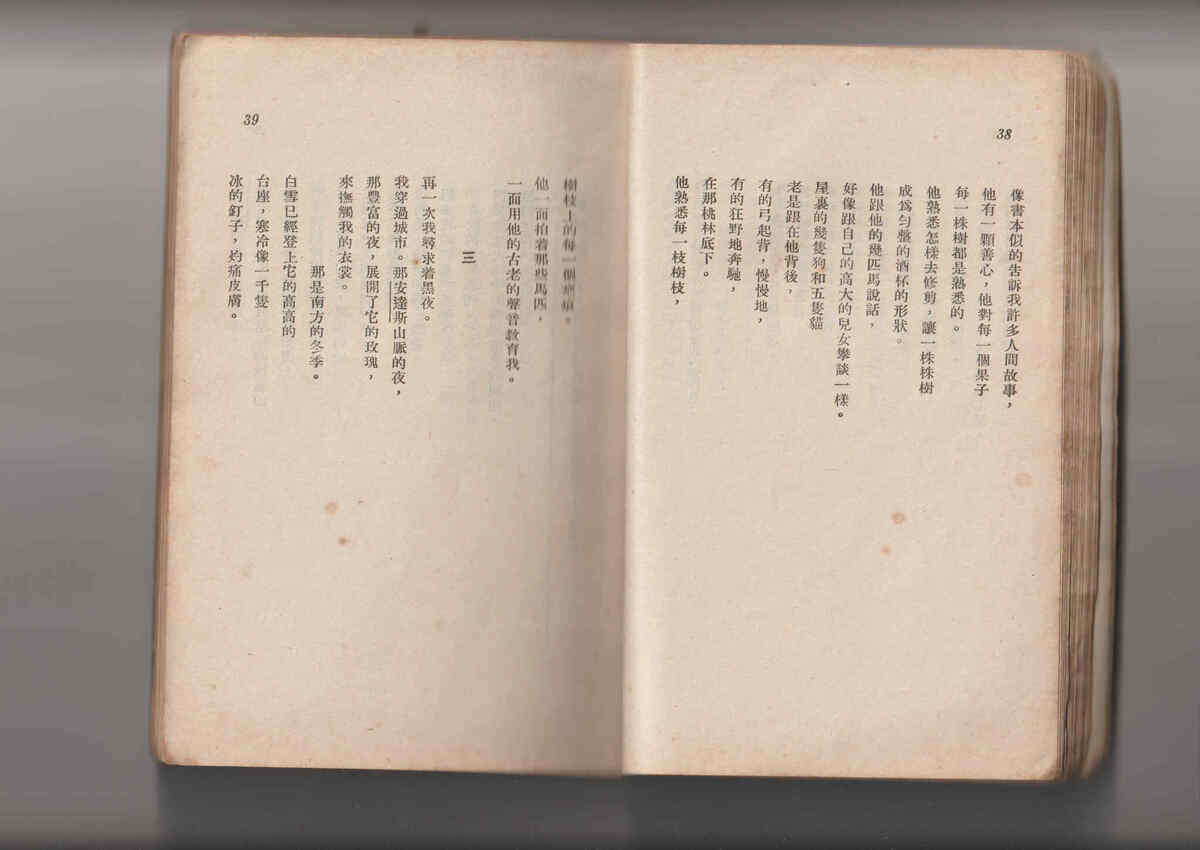 38
像書本似的告訴我許多人間故事，
他有一顆善心，他對每一個果子
每一株樹都是熟悉的。
他熟悉怎樣去修剪，讓一株株樹
成爲勻整的酒杯的形狀。
他跟他的幾匹馬說話，
好像跟自己的高大的兒女攀談一樣。
屋裏的幾隻狗和五隻貓
老是跟在他背後，
有的弓起背，慢慢地，
有的狂野地奔馳，
在那桃林底下。
他熟悉每一枝樹枝，
39
樹枝上的每一個瘢痕。
他一面拍着那些馬匹，
一面用他的古老的聲音敎育我。
三
再一次我尋求着黑夜。
我穿過城市。那安達斯山脈的夜，
那豐富的夜，展開了它的玫瑰，
來撫觸我的衣裳。
那是南方的冬季。
白雪已經登上它的高高的
台座，寒冷像一千隻
冰的釘子，灼痛皮膚。